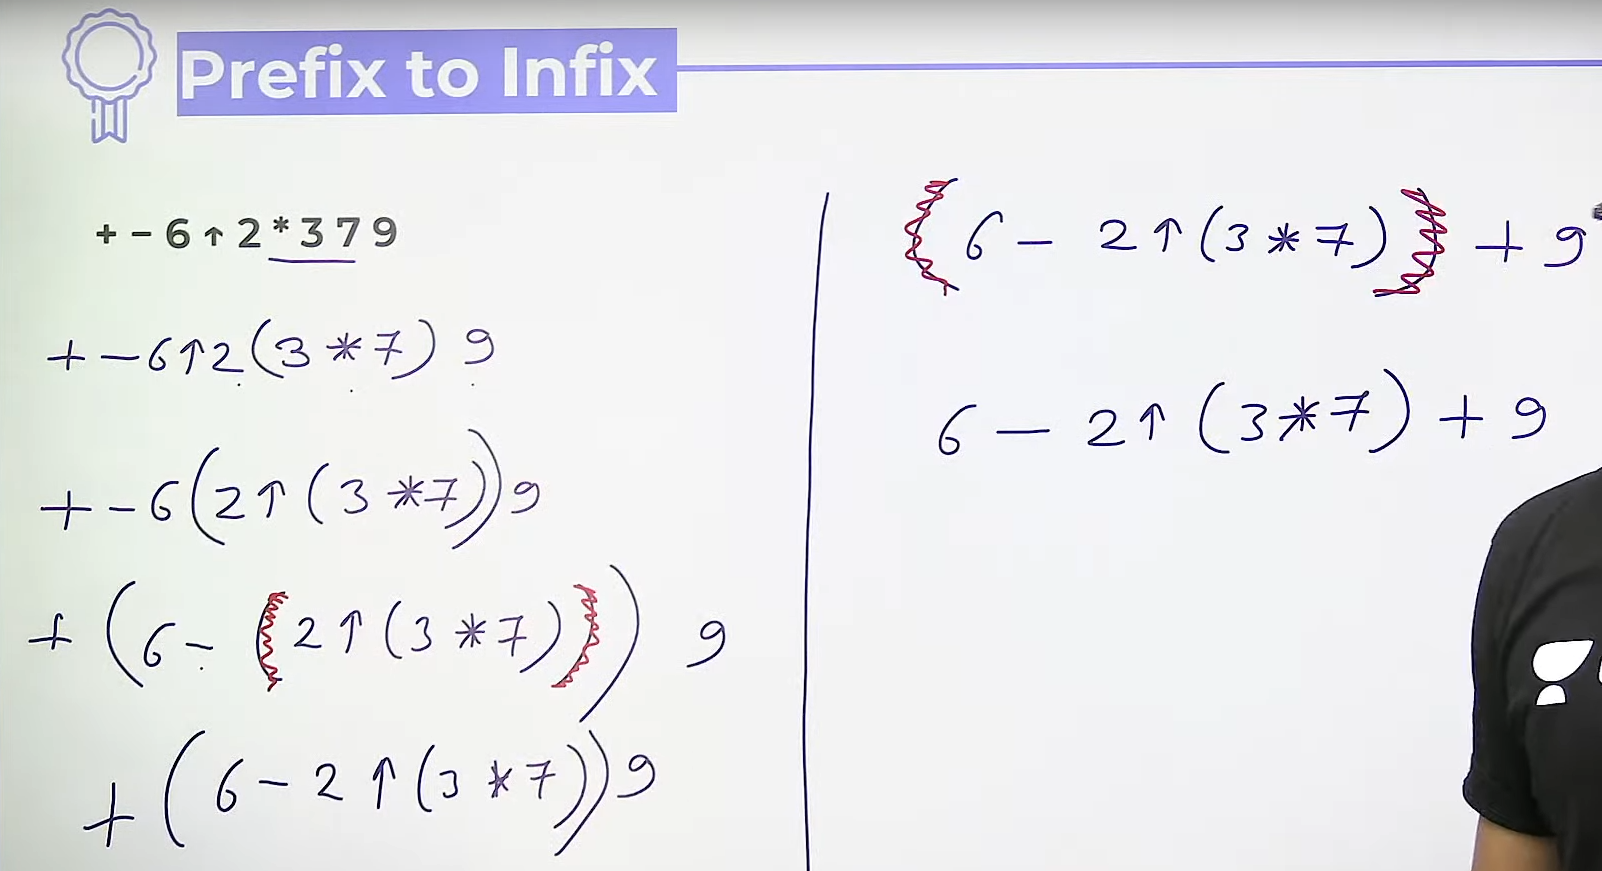 Prefix to Infix
+ - 6 ↑ 2 * 3 7 9
+ - 6 ↑ 2 (3 * 7) 9
+ - 6 (2 ↑ (3 * 7)) 9
+ (6 - (2 ↑ (3 * 7))) 9
+ (6 - 2 ↑ (3 * 7)) 9
(6 - 2 ↑ (3 * 7)) + 9
6 - 2 ↑ (3 * 7) + 9